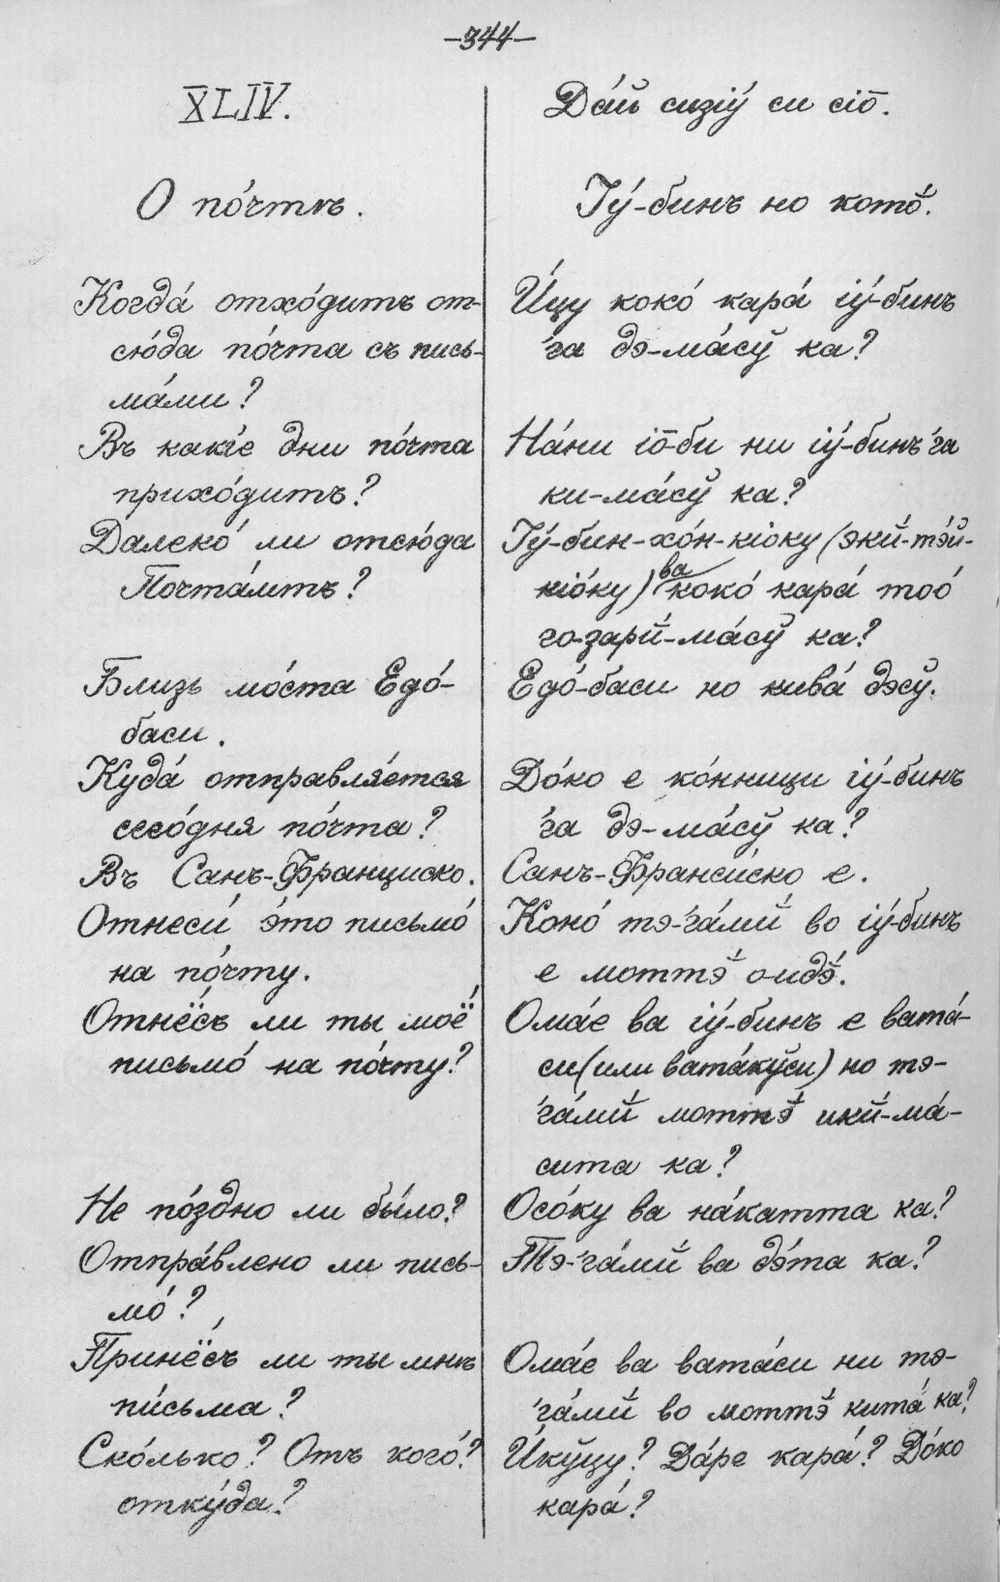 –344–
XLIV.
О по́чтѣ.
Когда́ отхо́дитъ от-
сю́да по́чта съ пись-
ма́ми?
Въ какі́е дни по́чта
прихо́дитъ?
Далеко́ ли отсю́да
Почта́мтъ?
Близь мо́ста Едо́-
баси.
Куда́ отправля́ется
сего́дня по́чта?
Въ Санъ-Франциско.
Отнеси́ э́то письмо́
на по́чту.
Отнёсъ ли ты моё
письмо́ на по́чту?
Не по́здно ли бы́ло?
Отпра́влено ли пись-
мо́?
Принёсъ ли ты мнѣ
пи́сьма?
Ско́лько? Отъ кого́?
отку́да?
Да́й сизіу́ си сіо̄.
Іу́-бинъ но кото̆́.
И́цу коко́ кара́ іу́-бинъ
'га дэ-ма́сў ка?
На́ни іо̄-би ни іу́-бинъ'га
ки-ма́сў ка?
Іу́-бин-хо́н-кіоку (экй-тэ́й-
кіо́ку) ва коко́ кара́ тоо́
го-зарй́-ма́сў ка?
Едо́-баси но кива́ дэсў.
До́ко е ко́нници іу́-бинъ
'га дэ-ма́сў ка?
Санъ-Франси́ско е.
Коно́ тэ-'га́мй́ во іу́-бинъ
е моттэ̆́ о-идэ̆́.
Ома́е ва іу́-бинъ е вата́-
си (или вата́кўси) но тэ-
'га́мй́ моттэ̆́ икй́-ма́-
сита ка?
Осо́ку ва на́катта ка?
Тэ-'га́мй́ ва дэ́та ка?
Ома́е ва вата́си ни тэ-
'га́мй́ во моттэ̆́ кита́ ка?
И́кўцу? Да́ре кара́? До́ко
кара́?